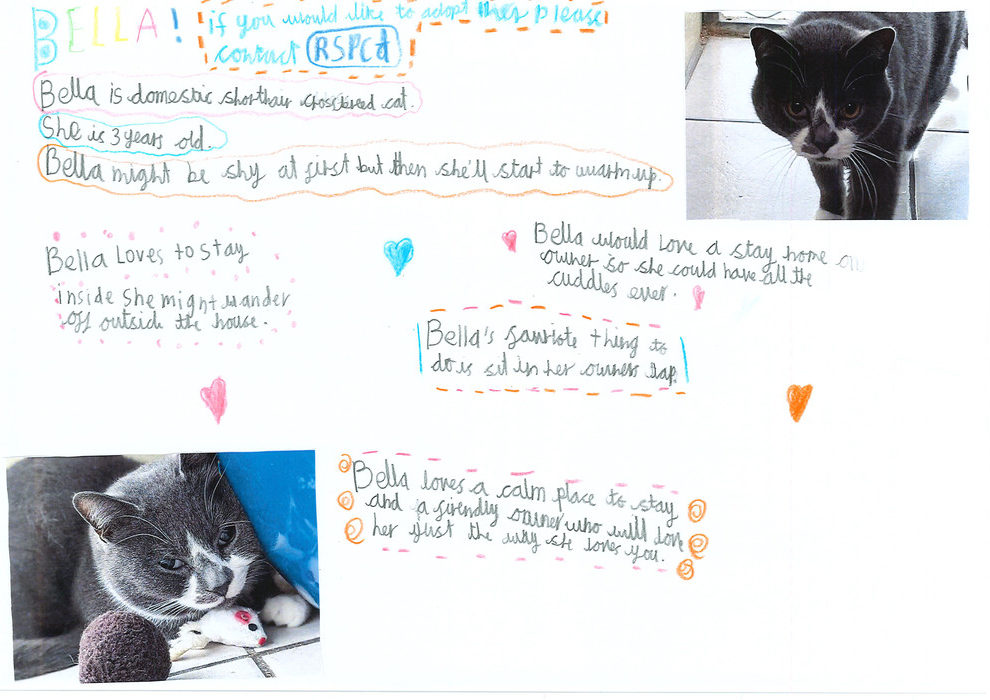 BELLA!
if you would like to adopt her please
contact RSPCA
Bella is domestic shorthair crossbreed cat.
She is 3 years old.
Bella might be shy at first but then she'll start to warm up.
Bella Loves to stay
inside She might wander
off outside the house.
Bella would love a stay home
owner so she could have all the
cuddles ever.
Bella's fawriote thing to
do is sit in her owners lap.
Bella loves a calm place to stay
and a firendly owner who will love
her just the way she loves you.